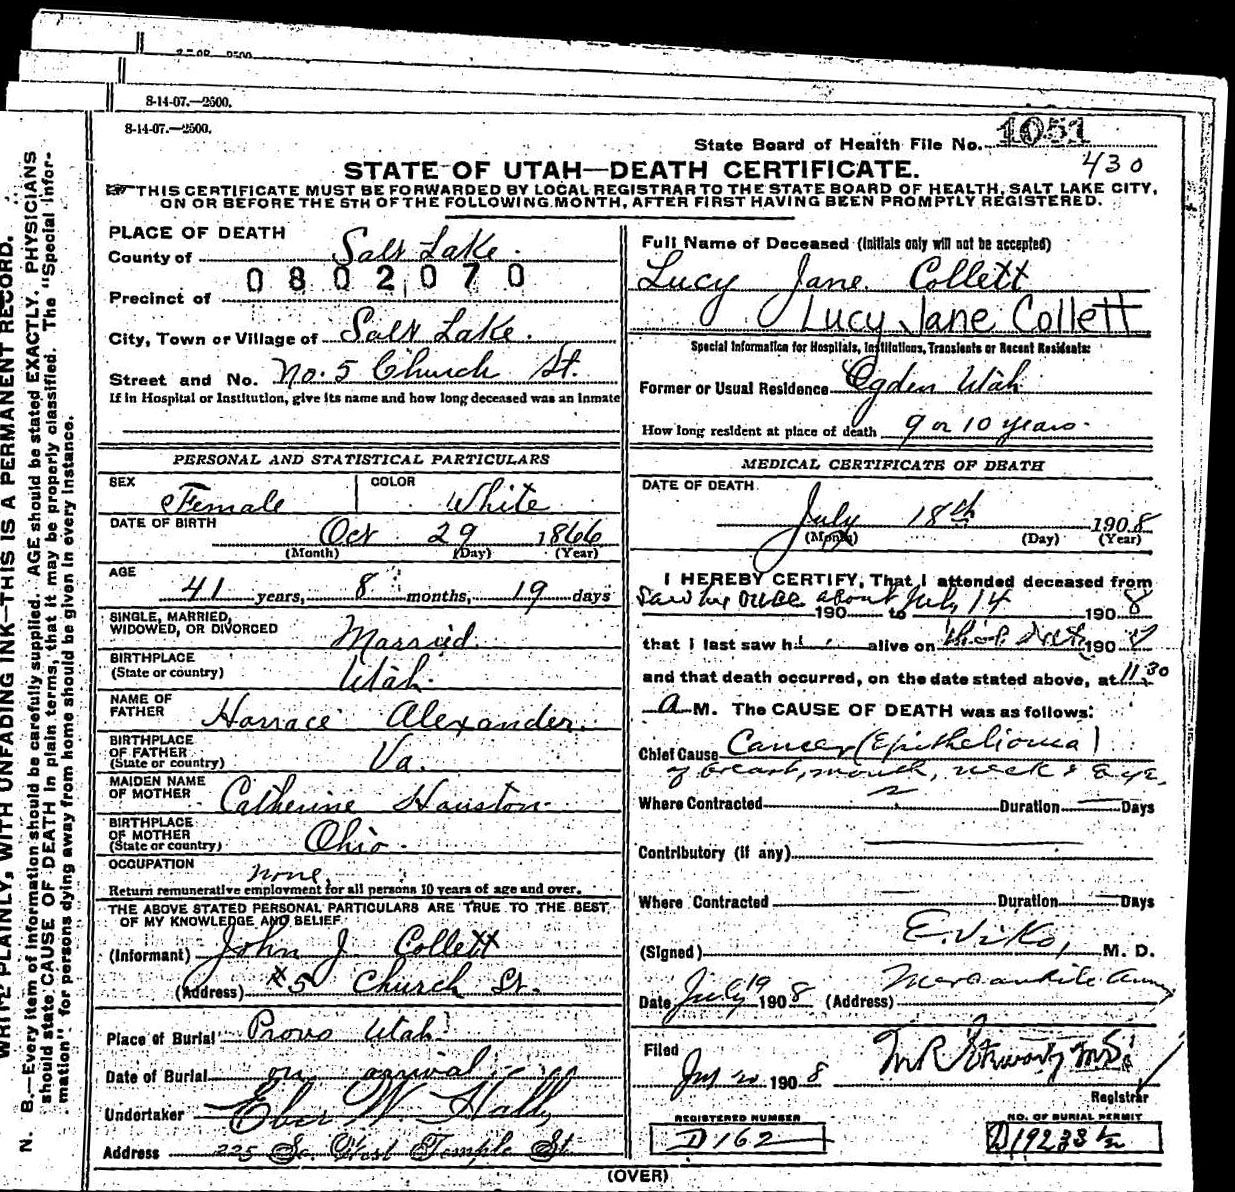 8-14-07.—2500.
8-14-07.—2500.
State Board of Health File No. 1051
430
STATE OF UTAH—DEATH CERTIFICATE.
THIS CERTIFICATE MUST BE FORWARDED BY LOCAL REGISTRAR TO THE STATE BOARD OF HEALTH, SALT LAKE CITY,
ON OR BEFORE THE 5TH OF THE FOLLOWING MONTH, AFTER FIRST HAVING BEEN PROMPTLY REGISTERED.
PLACE OF DEATH
County of Salt Lake.
0802070
Precinct of
City, Town or Village of Salt Lake.
Street and No. No. 5 Church St.
If in Hospital or Institution, give its name and how long deceased was an inmate
PERSONAL AND STATISTICAL PARTICULARS
SEX Female COLOR White
DATE OF BIRTH Oct 29 1866
(Month) (Day) (Year)
AGE 41 years, 8 months, 19 days
SINGLE, MARRIED,
WIDOWED, OR DIVORCED Married
BIRTHPLACE
(State or country) Utah.
NAME OF
FATHER Horrace Alexander.
BIRTHPLACE
OF FATHER
(State or country) Va.
MAIDEN NAME
OF MOTHER Catherine Houston
BIRTHPLACE
OF MOTHER
(State or country) Ohio.
OCCUPATION none.
Return remunerative employment for all persons 10 years of age and over.
THE ABOVE STATED PERSONAL PARTICULARS ARE TRUE TO THE BEST
OF MY KNOWLEDGE AND BELIEF
(Informant) John J Collett
(Address) #5 Church St.
Place of Burial Provo Utah
Date of Burial on arrival
Undertaker Eber W Hall
Address 225 So. West Temple St
Full Name of Deceased (Initials only will not be accepted)
Lucy Jane Collett
Lucy Jane Collett
Special Information for Hospitals, Institutions, Transients or Recent Residents:
Former or Usual Residence Ogden Utah
How long resident at place of death 9 or 10 years.
MEDICAL CERTIFICATE OF DEATH
DATE OF DEATH
July 18th 1908
(Month) (Day) (Year)
I HEREBY CERTIFY, That I attended deceased from
Saw her once about July 14 190 to 1908
that I last saw h alive on 190
and that death occurred, on the date stated above, at 11.30
A M. The CAUSE OF DEATH was as follows:
Chief Cause Cancer (Epithelioma)
of breast, mouth, neck & Eye.
Where Contracted Duration Days
Contributory (if any)
Where Contracted Duration Days
(Signed) E. Viko, M. D.
Date July 19 1908 (Address) Mercantile
Filed
190 8
Registrar
REGISTERED NUMBER
D162
NO. OF BURIAL PERMIT
D19233½
(OVER)
WRITE PLAINLY, WITH UNFADING INK—THIS IS A PERMANENT RECORD.
N. B.—Every item of information should be carefully supplied. AGE should be stated EXACTLY. PHYSICIANS
should state CAUSE OF DEATH in plain terms, that it may be properly classified. The "Special Infor-
mation" for persons dying away from home should be given in every instance.